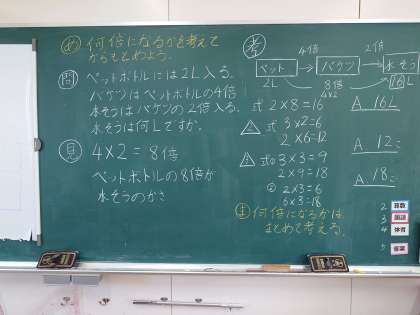 め 何倍になるかを考えて
からもとめよう。
問 ペットボトルには2L入る。
バケツはペットボトルの4倍
水そうはバケツの2倍入る。
水そうは何Lですか。
見 4×2=8倍
ペットボトルの8倍が
水そうのかさ
考
4倍
2倍
ペット
バケツ
水そう
2L
8倍
4×2
16L
式 2×8=16
A 16L
3×2=6
2×6=12
A 12
式① 3×3=9
2×9=18
② 2×3=6
6×3=18
A 18
ま 何倍になるかは
まとめて考える。
2 算数
3 国語
4 体育
5